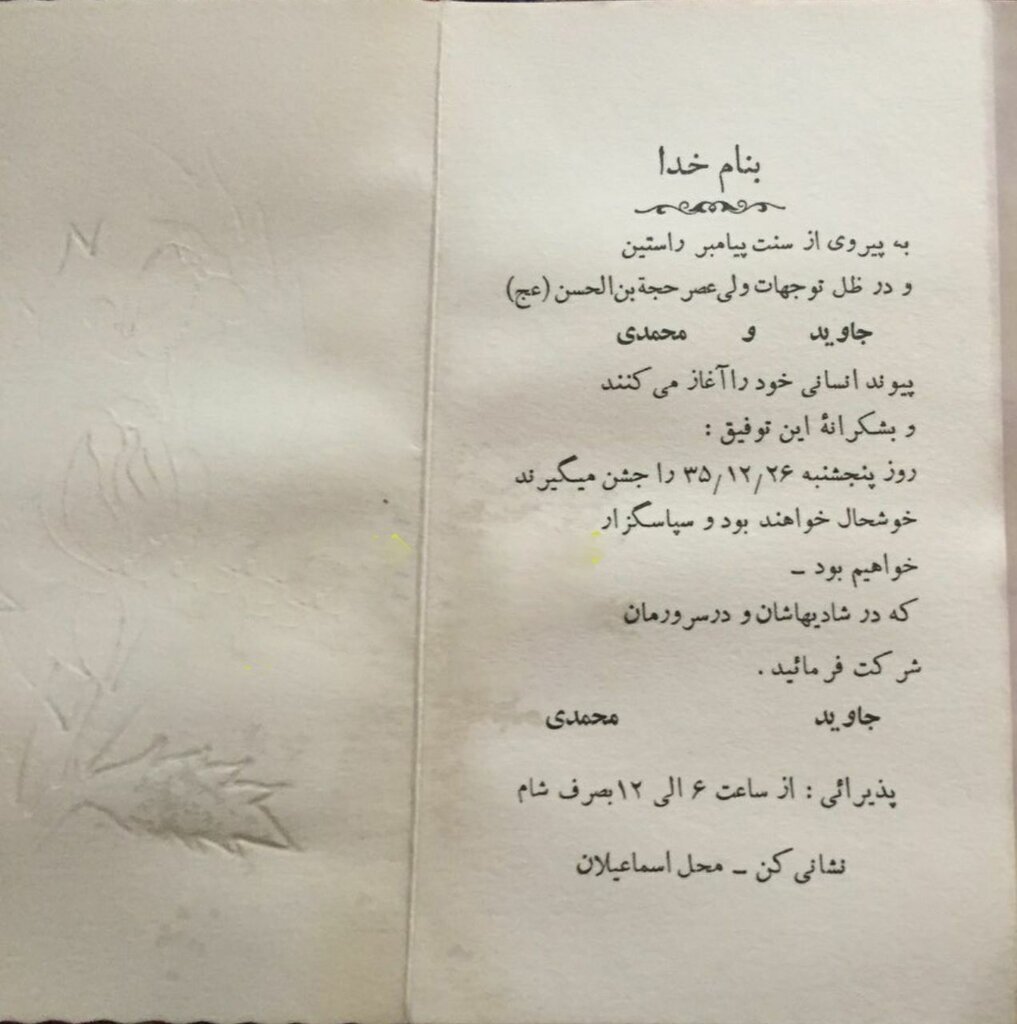 بنام خدا
به پیروی از سنت پیامبر راستین
و در ظل توجهات ولی‌عصر حجة‌بن‌الحسن (عج)
جاوید و محمدی
پیوند انسانی خود را آغاز می کنند
و بشکرانهٔ این توفیق :
روز پنجشنبه ۳۵/۱۲/۲۶ را جشن میگیرند
خوشحال خواهند بود و سپاسگزار
خواهیم بود ـ
که در شادیهاشان و درسرورمان
شرکت فرمائید .
جاوید محمدی
پذیرائی : از ساعت ۶ الی ۱۲ بصرف شام
نشانی کن ـ محل اسماعیلان